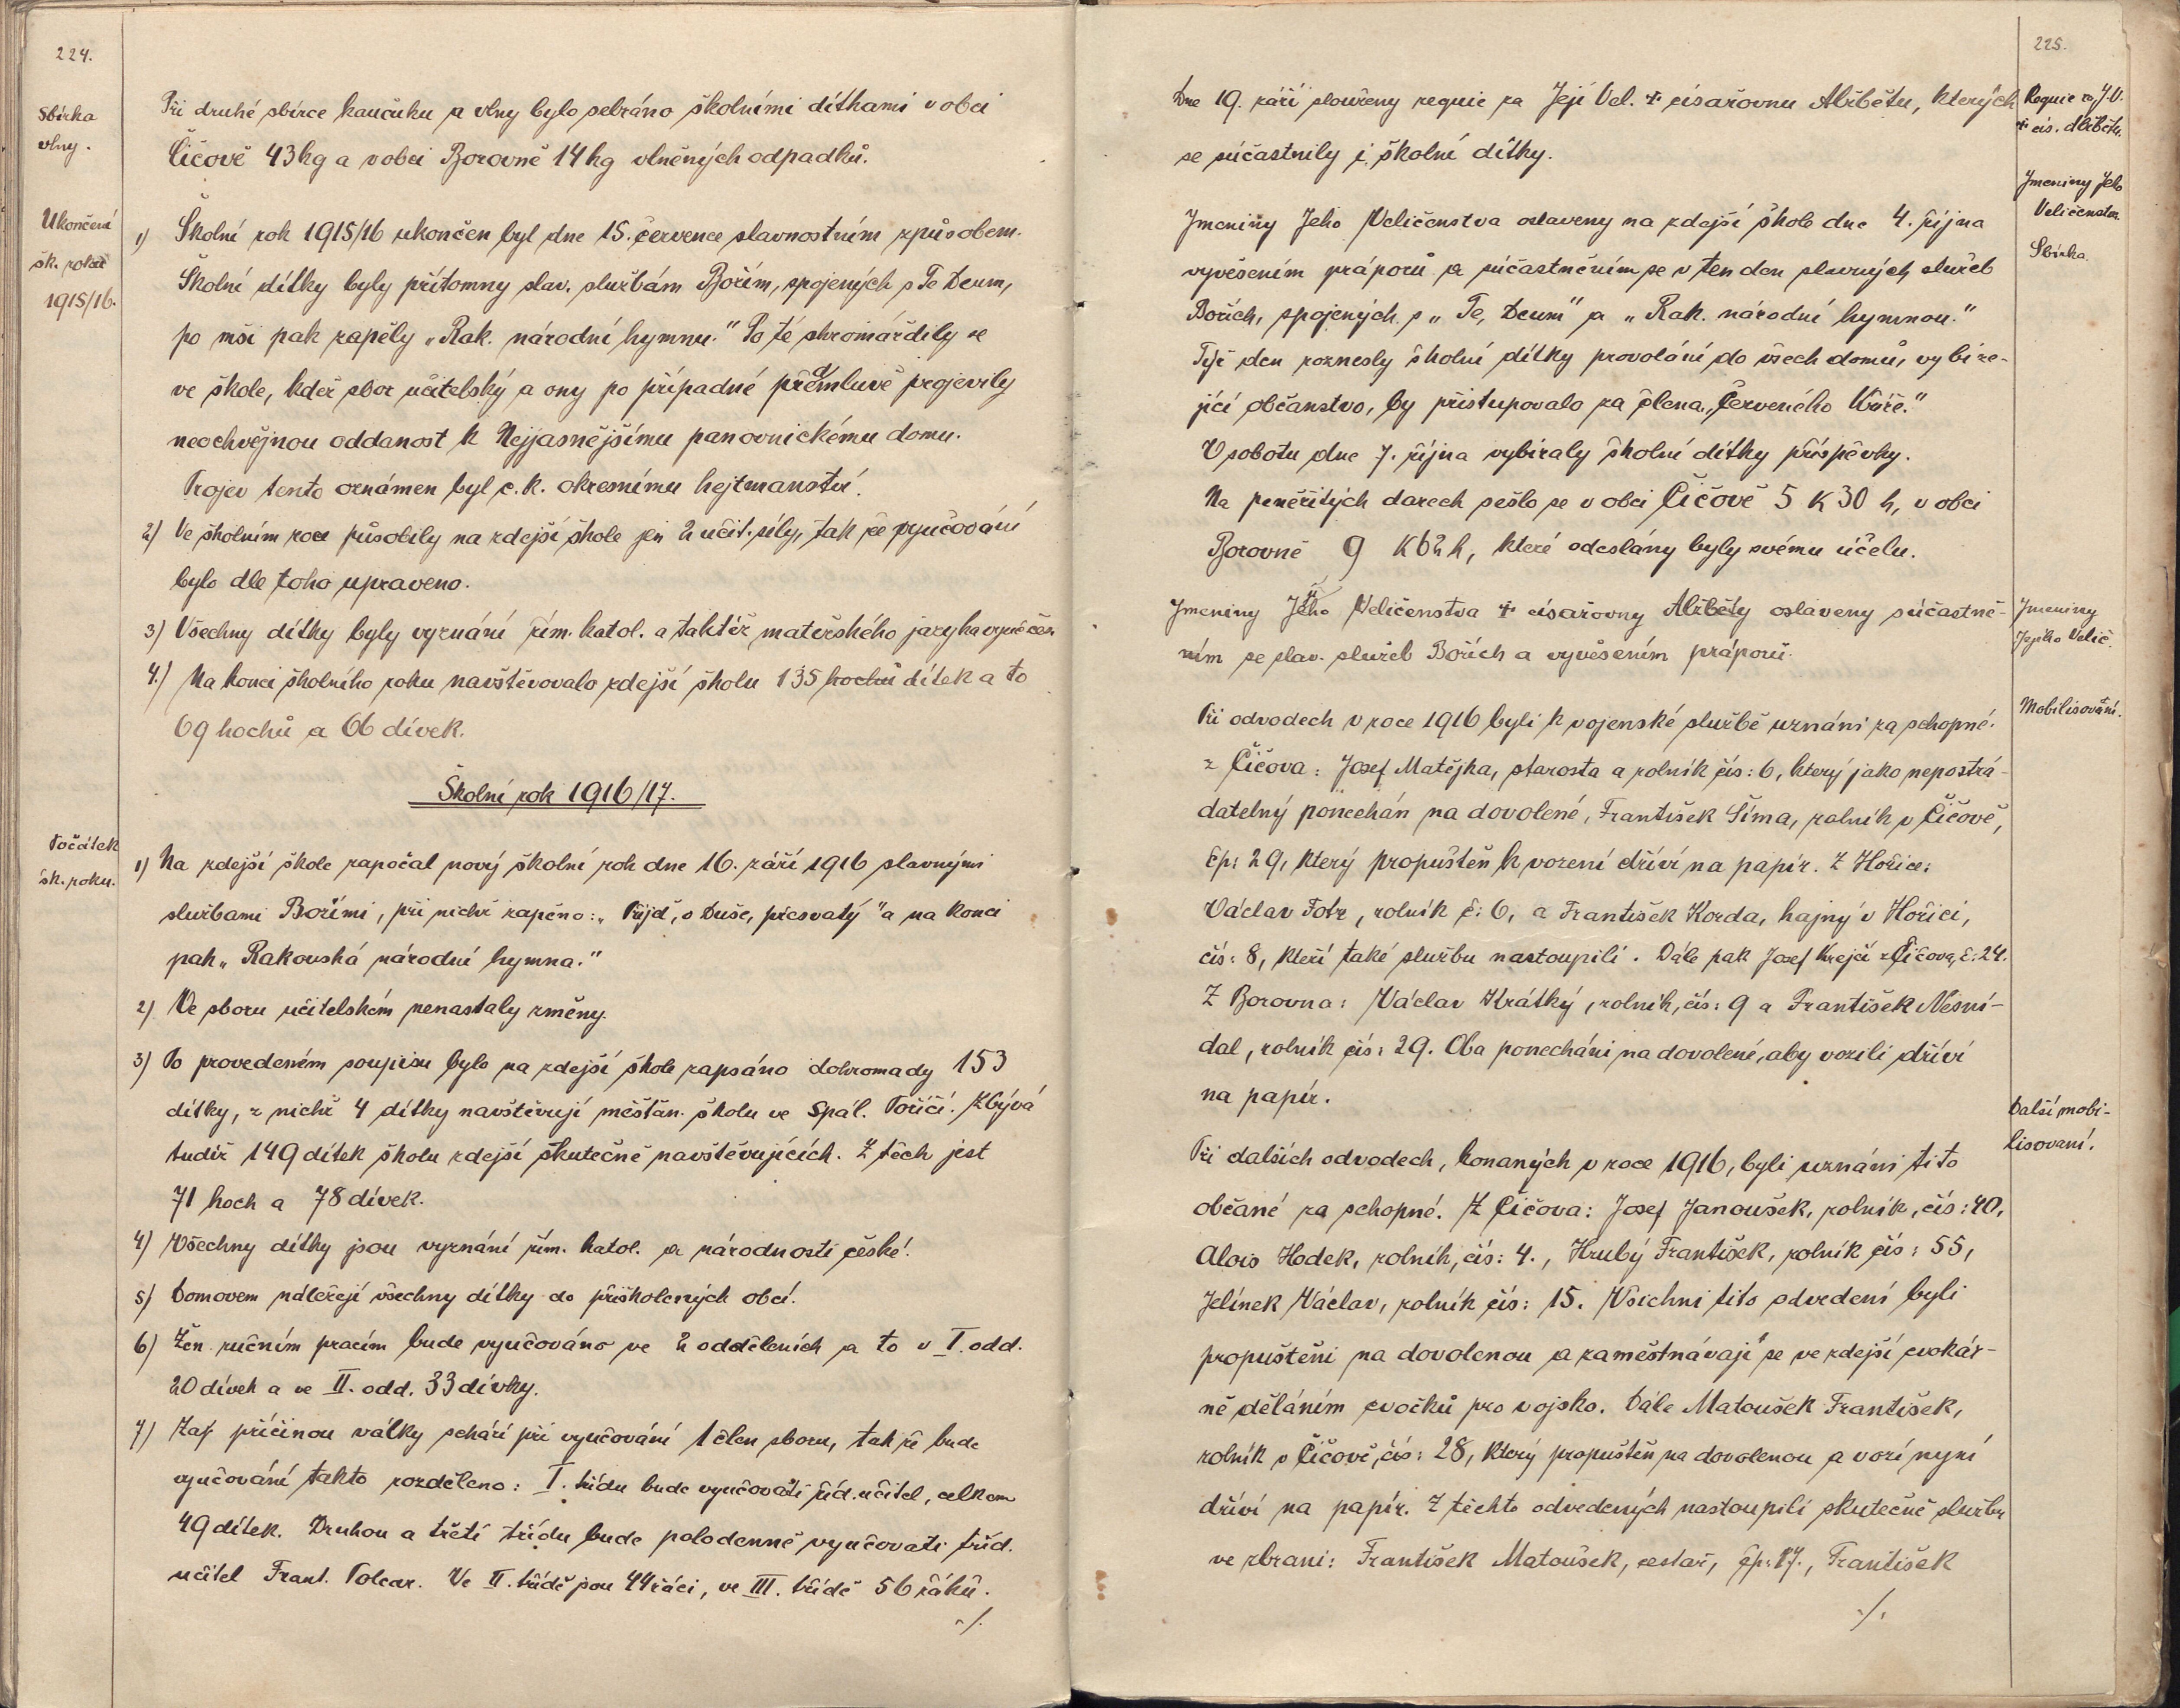 224.
Sbírka
vlny.
Při druhé sbírce kaučuku a vlny bylo sebráno školními dítkami v obci
Číčově 43 kg a v obci Borovně 14 kg vlněných odpadků.
Ukončení
šk. roku
1915/16.
1) Školní rok 1915/16 ukončen byl dne 15. července slavnostním způsobem.
Školní dítky byly přítomny slav. službám Božím, spojených s Te Deum,
po mši pak zapěly „Rak. národní hymnu." Po té shromáždily se
ve škole, kdež sbor učitelský a ony po případné promluvě projevily
neochvějnou oddanost k Nejjasnějšímu panovnickému domu.
Projev tento oznámen byl c. k. okresnímu hejtmanství.
2) Ve školním roce působily na zdejší škole jen 2 učit. síly, tak že vyučování
bylo dle toho upraveno.
3) Všechny dítky byly vyznání řím. katol. a taktéž mateřského jazyka
4.) Na konci školního roku navštěvovalo zdejší školu 135 hochů dítek a to
69 hochů a 66 dívek.
Školní rok 1916/17.
Počátek
šk. roku.
1) Na zdejší škole započal nový školní rok dne 16. září 1916 slavnými
službami Božími, při nichž zapěno: „Přijď, o Duše, přesvatý" a na konci
pak „Rakouská národní hymna."
2) Ve sboru učitelském nenastaly změny.
3) Po provedeném soupisu bylo na zdejší škole zapsáno dohromady 153
dítky, z nichž 4 dítky navštěvují měšťan. školu ve Spál. Poříčí. Zbývá
tudíž 149 dítek školu zdejší skutečně navštěvujících. Z těch jest
71 hoch a 78 dívek.
4) Všechny dítky jsou vyznání řím. katol. a národnosti české.
5) Domovem náležejí všechny dítky do přiškolených obcí.
6) Žen. ručním pracím bude vyučováno ve 2 odděleních a to v I. odd.
20 dívek a ve II. odd. 33 dívky.
7) Zat příčinou války schází při vyučování 1 člen sboru, tak že bude
vyučování takto rozděleno: I. třídu bude vyučovati říd. učitel, celkem
49 dítek. Druhou a třetí třídu bude polodenně vyučovati tříd.
učitel Frant. Tolcar. Ve II. třídě jsou 44 žáci, ve III. třídě 56 žáků.
./.
225.
Dne 19. září slouženy requie za Její Vel. † císařovnu Alžbětu, kterých
se súčastnily i školní dítky.
Requie za J. V.
† cís. Alžbětu.
Jmeniny Jeho
Veličenstva
Sbírka.
Jmeniny Jeho Veličenstva oslaveny na zdejší škole dne 4. října
vyvěšením práporů a súčastněním se v ten den slavných služeb
Božích, spojených s „Te, Deum" a „Rak. národní hymnou."
Týž den roznesly školní dítky provolání do všech domů, vybíze-
jící občanstvo, by přistupovalo za člena „Červeného Kříže."
V sobotu dne 7. října vybíraly školní dítky příspěvky.
Na peněžitých darech sešlo se v obci Číčově 5 K 30 h, v obci
Borovně 9 K 62 h, které odeslány byly svému účelu.
Jmeniny Jejího Veličenstva † císařovny Alžběty oslaveny súčastně-
ním se slav. služeb Božích a vyvěšením práporů.
Jmeniny
Jejího Velič.
Mobilisování.
Při odvodech v roce 1916 byli k vojenské službě uznáni za schopné.
z Číčova: Josef Matějka, starosta a rolník čís: 6, který jako nepostrá-
datelný ponechán na dovolené, František Šíma, rolník v Číčově,
čp: 29, který propuštěn k vození dříví na papír. Z Hořice:
Václav Fotr, rolník č: 6, a František Korda, hajný v Hořici,
čís: 8, kteří také službu nastoupili. Dále pak Josef Krejčí z Číčova, č: 24.
Z Borovna: Václav Krátký, rolník, čís: 9 a František Nesní-
dal, rolník čís: 29. Oba ponecháni na dovolené, aby vozili dříví
na papír.
Další mobi-
lisovaní.
Při dalších odvodech, konaných v roce 1916, byli uznáni tito
občané za schopné. Z Číčova: Josef Janoušek, rolník, čís: 40,
Alois Hodek, rolník, čís: 4., Hrubý František, rolník čís: 55,
Jelínek Václav, rolník čís: 15. Všichni tito odvedení byli
propuštěni na dovolenou a zaměstnávají se ve zdejší cvokár-
ně děláním cvočků pro vojsko. Dále Matoušek František,
rolník v Číčově, čís: 28, který propuštěn na dovolenou a vozí nyní
dříví na papír. Z těchto odvedených nastoupili skutečně službu
ve zbrani: František Matoušek, cestář, čp: 17., František
./.